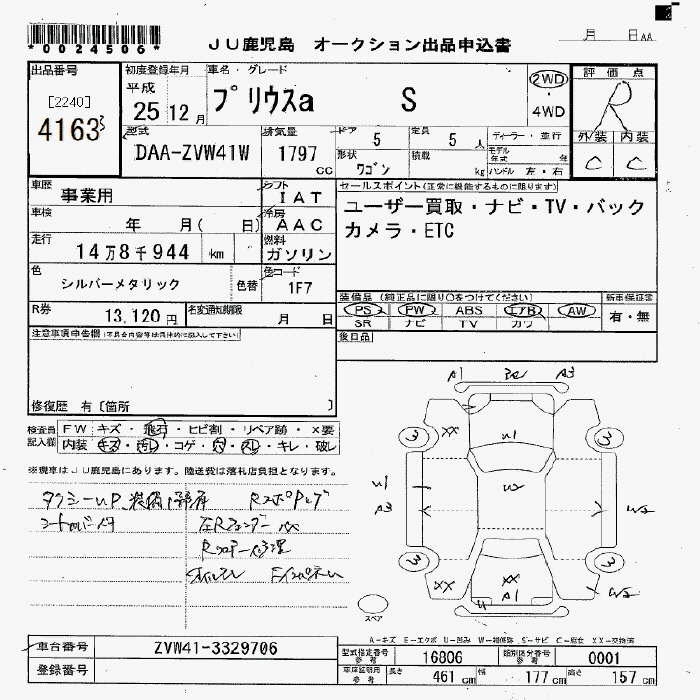 *0024506*
JU鹿児島 オークション出品申込書
月 日 AA
出品番号
[2240]
4163
初度登録年月
平成
25 12 月
車名・グレード
プリウスa S
2WD
・
4WD
評価点
R
外装 内装
C C
型式
DAA-ZVW41W
排気量
1797 cc
ドア 5
定員 5 人
ディーラー・並行
形状 ワゴン
積載 kg
モデル年式 年
ハンドル 左・右
車歴 事業用
シフト IAT
車検 年 月( 日)
冷房 AAC
走行 14万8千944 km
燃料 ガソリン
色 シルバーメタリック 色替
色コード 1F7
R券 13,120 円
名変通知期限 月 日
セールスポイント(正常に機能するものに限ります)
ユーザー買取・ナビ・TV・バック
カメラ・ETC
装備品 (純正品に限り○をつけてください)
PS PW ABS エアB AW
SR ナビ TV カワ
新車保証書
有・無
後日品
注意事項申告欄
修復歴 有〔箇所 〕
検査員記入欄
FW キズ・飛石・ヒビ割・リペア跡・×要
内装 キズ・汚レ・コゲ・穴・スレ・キレ・破レ
※現車はJU鹿児島にあります。陸送費は落札店負担となります。
A1 A3
3 XX U1 3
U1 U2 W2
A3
3 XX XX A1 3
U W2
スペア
A-キズ E-エクボ U-凹み W-補修跡 S-サビ C-腐食 XX-交換済
車台番号 ZVW41-3329706
登録番号
型式指定番号 参考 16806
類別区分番号 参考 0001
長さ 461 cm
幅 177 cm
高さ 157 cm